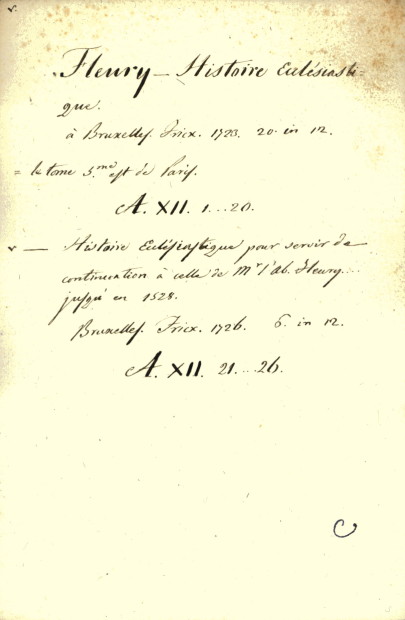 v.
Fleury — Histoire Eclésiasti-
que.
à Bruxelles. Fricx. 1723. 20. in 12.
= le tome 5.me est de Paris.
A. XII. 1...20.
v — Histoire Eclésiastique pour servir de
continuation à celle de Mr l'Ab. Fleury....
jusqu'en 1528.
Bruxelles. Fricx. 1726. 6. in 12.
A. XII. 21...26.
C